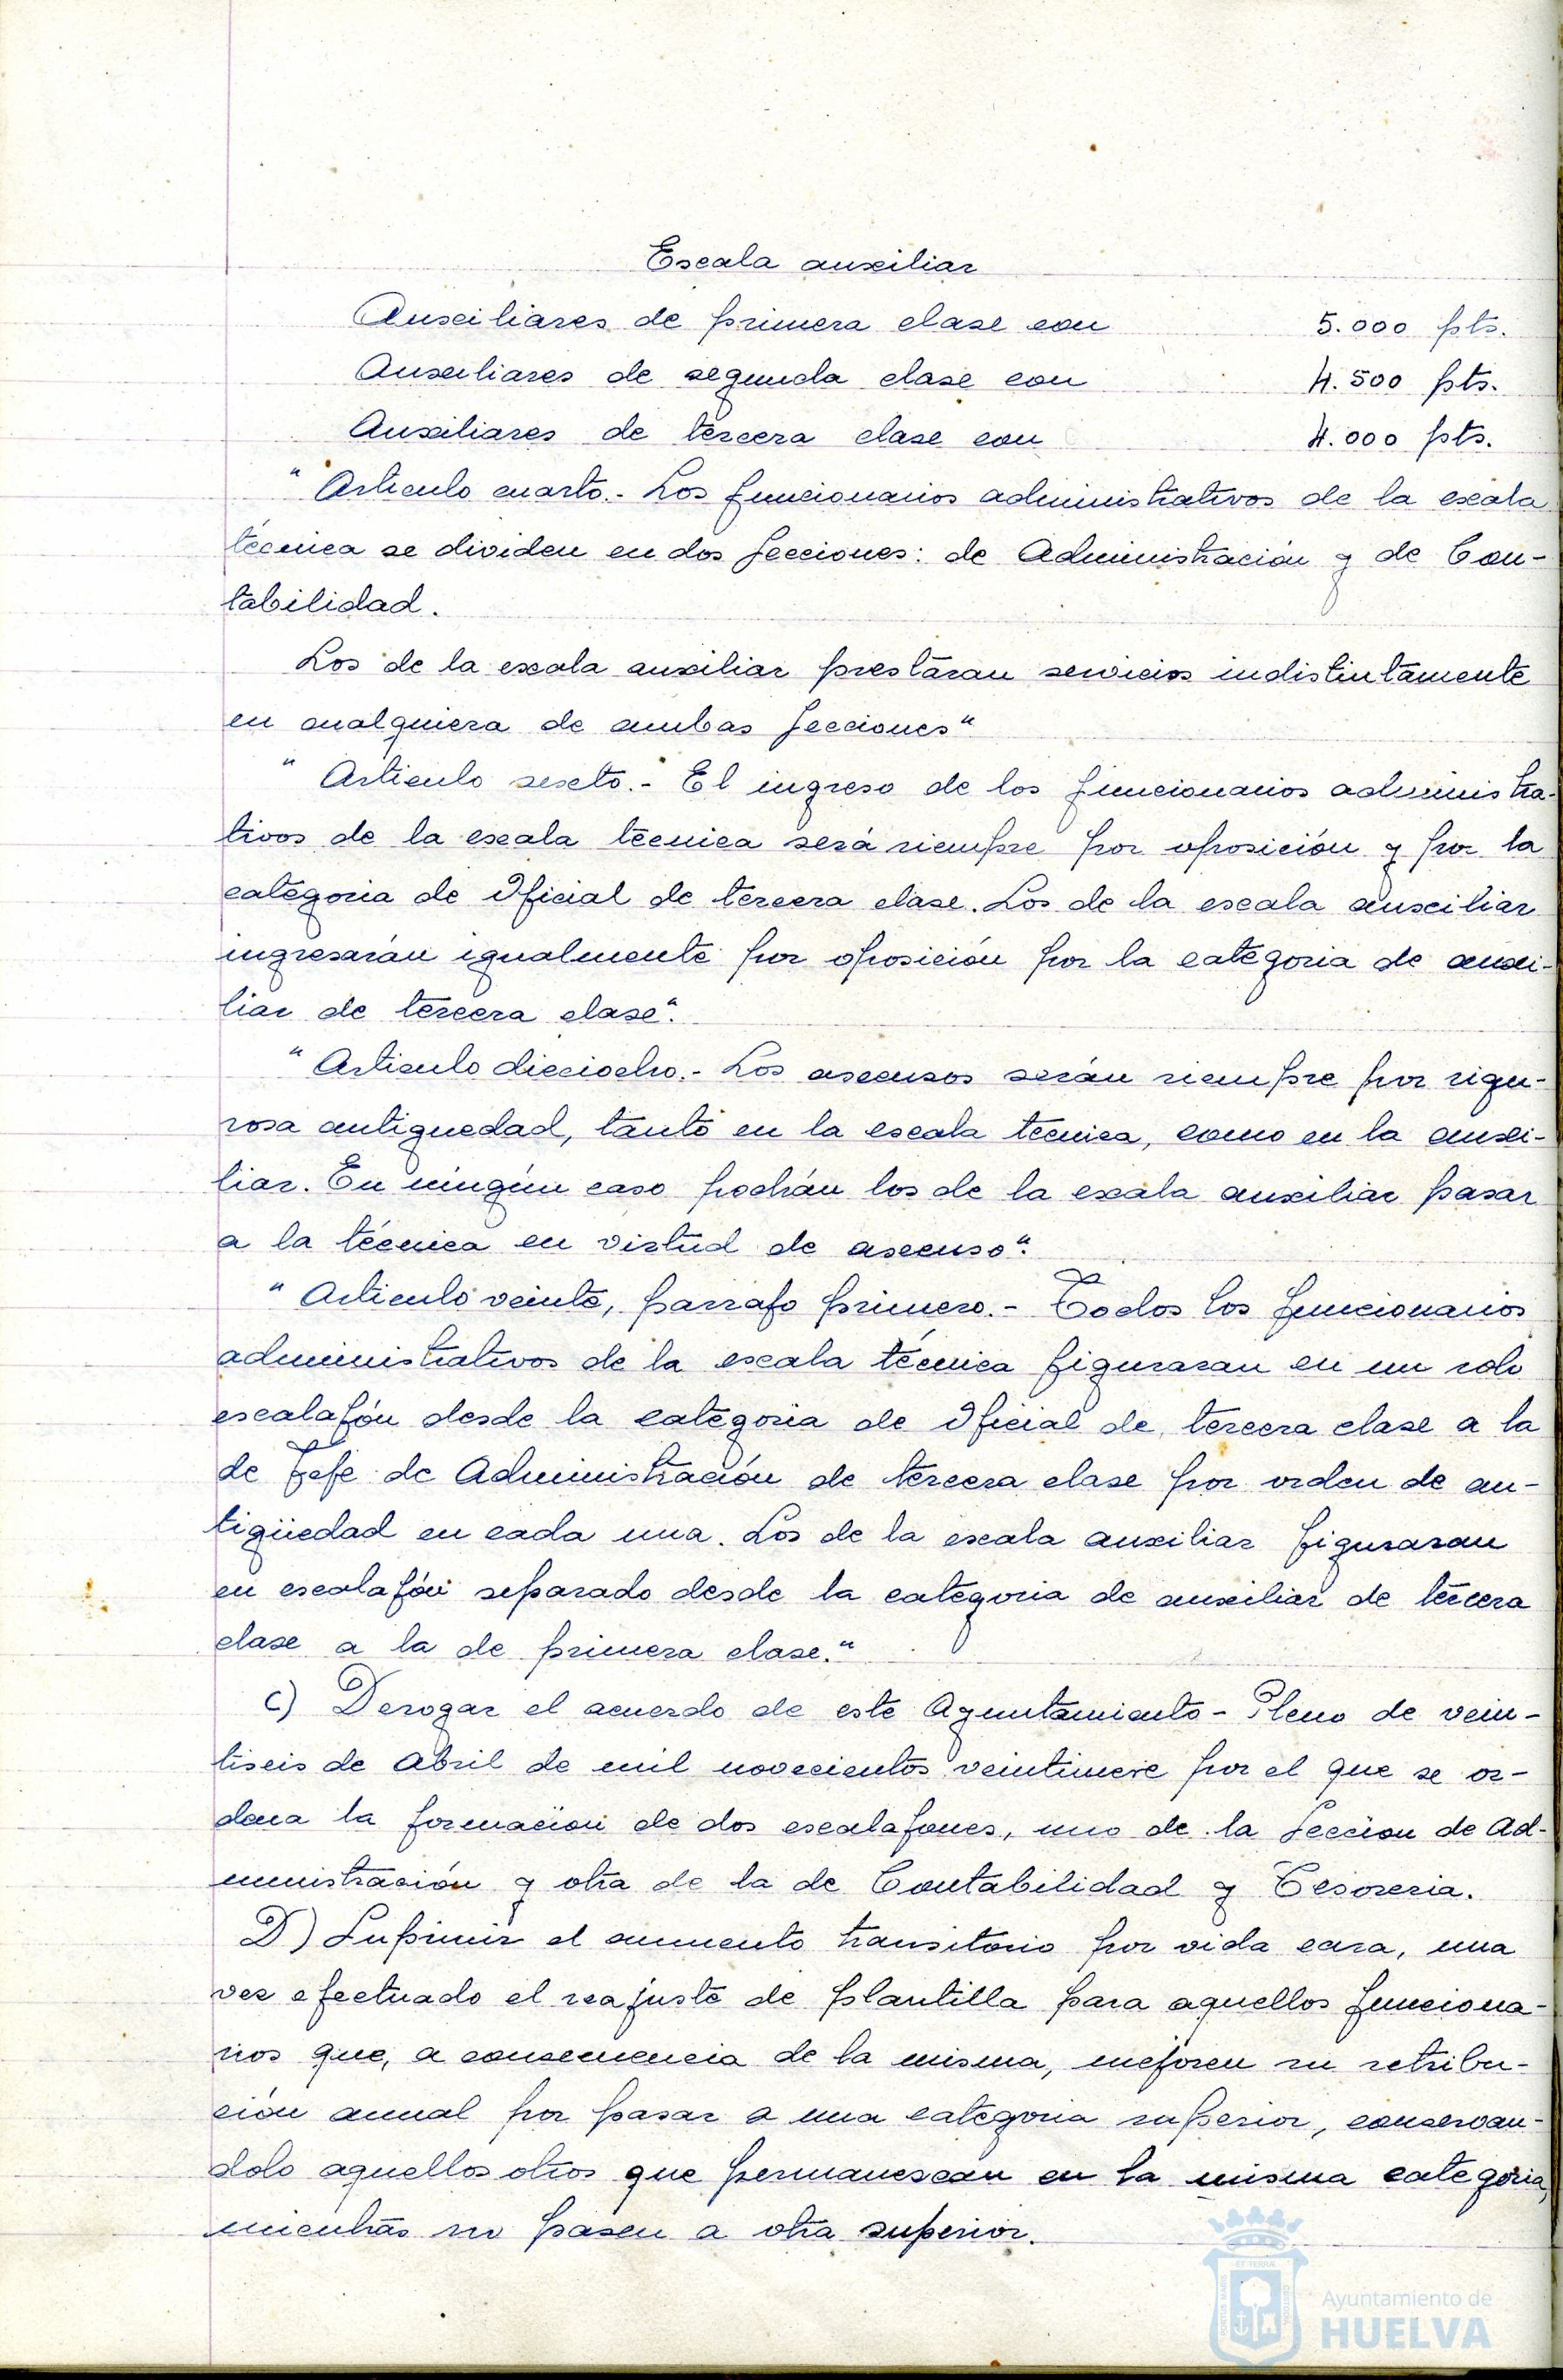 Escala auxiliar
Auxiliares de primera clase con 5.000 pts.
Auxiliares de segunda clase con 4.500 pts.
Auxiliares de tercera clase con 4.000 pts.
"Articulo cuarto.- Los funcionarios administrativos de la escala
técnica se dividen en dos Secciones: de Administración y de Con-
tabilidad.
Los de la escala auxiliar prestaran servicios indistintamente
en cualquiera de ambas Secciones"
"Articulo sexto.- El ingreso de los funcionarios administra-
tivos de la escala técnica será siempre por oposición y por la
categoria de Oficial de tercera clase. Los de la escala auxiliar
ingresarán igualmente por oposición por la categoria de auxi-
liar de tercera clase".
"Articulo dieciocho.- Los ascensos serán siempre por rigu-
rosa antiguedad, tanto en la escala técnica, como en la auxi-
liar. En ningún caso podrán los de la escala auxiliar pasar
a la técnica en virtud de ascenso".
"Articulo veinte, parrafo primero.- Todos los funcionarios
administrativos de la escala técnica figuraran en un solo
escalafón desde la categoria de Oficial de tercera clase a la
de Jefe de Administración de tercera clase por orden de an-
tigüedad en cada una. Los de la escala auxiliar figuraran
en escalafón separado desde la categoria de auxiliar de tercera
clase a la de primera clase."
C) Derogar el acuerdo de este Ayuntamiento-Pleno de vein-
tiseis de Abril de mil novecientos veintinueve por el que se or-
dena la formación de dos escalafones, uno de la Seccion de Ad-
ministración y otra de la de Contabilidad y Tesoreria.
D) Suprimir el aumento transitorio por vida cara, una
vez efectuado el reajuste de plantilla para aquellos funciona-
rios que, a consecuencia de la misma, mejoren su retribu-
ción anual por pasar a una categoria superior, conservan-
dolo aquellos otros que permanezcan en la misma categoria,
mientras no pasen a otra superior.
Ayuntamiento de
HUELVA